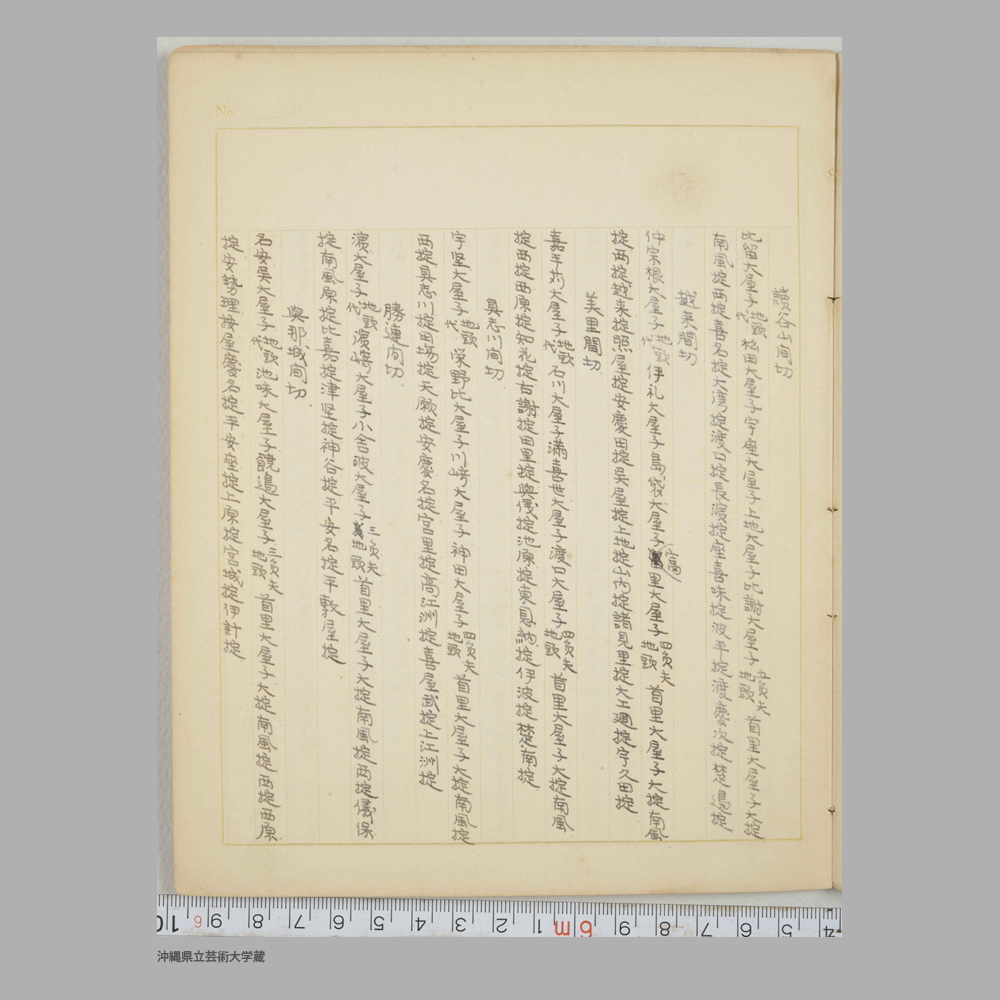 讀谷山间切
比留大屋子地頭代松田大屋子宇座大屋子上地大屋子比謝大屋子五負夫地頭首里大屋子大掟
南風掟西掟喜名掟大湾掟渡口掟長濱掟座喜味掟波平掟渡慶次掟楚邉掟
越来間切
仲宗根大屋子地頭代伊礼大屋子島袋大屋子(高里大屋子四負夫地頭首里大屋子大掟南風
掟西掟越来掟照屋掟安慶田掟吴屋掟上地掟山内掟諸見里掟大工廻掟宇久田掟
美里間切
嘉手苅大屋子地頭代石川大屋子満喜世大屋子渡口大屋子四負夫地頭首里大屋子大掟南風
掟西掟西原掟知花掟古謝掟田里掟與儀掟池原掟東恩納掟伊波掟楚南掟
具志川间切
宇堅大屋子地頭代栄野比大屋子川﨑大屋子神田大屋子四負夫地頭首里大屋子大掟南風掟
西掟具志川掟田場掟天願掟安慶名掟宮里掟高江洲掟喜屋武掟上江洲掟
勝連间切
濱大屋子地頭代濱﨑大屋子小舎波大屋子三負夫地頭首里大屋子大掟南風掟西掟儀保
掟南風原掟比嘉掟津堅掟神谷掟平安名掟平敷屋掟
與那城间切
名安吴大屋子地頭代池味大屋子饒邉大屋子三負夫地頭首里大屋子大掟南風掟西掟西原
掟安勢理掟屋慶名掟平安座掟上原掟宮城掟伊計掟
No.
10 6 9 8 7 6 5 4 3 2 1 6m 9 8 7 6 5 4
沖縄県立芸術大学蔵